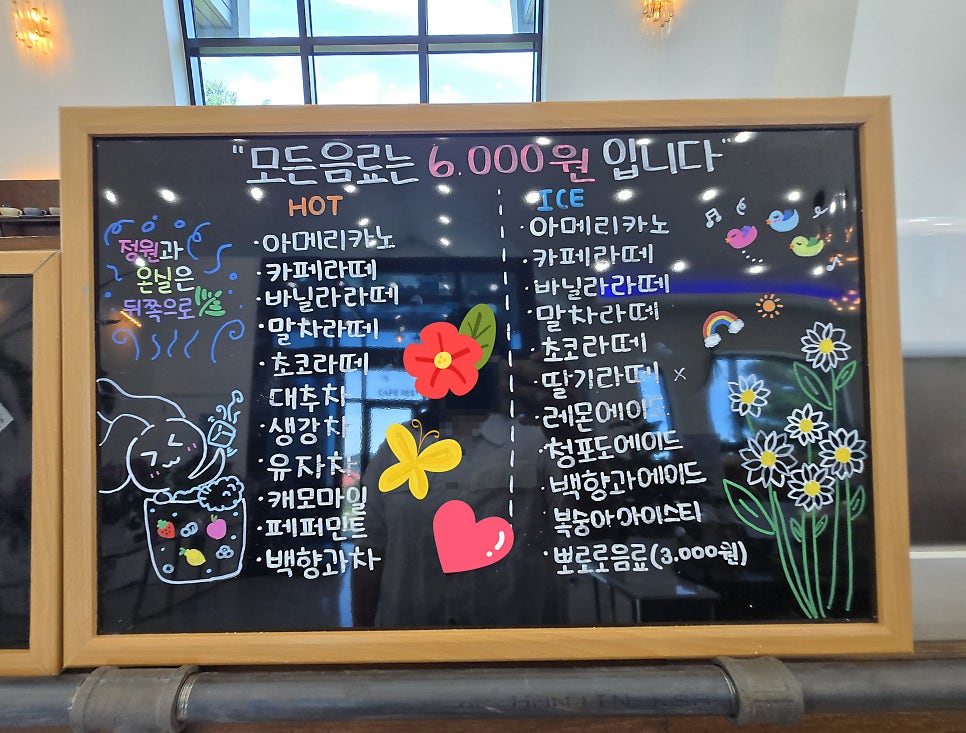 "모든음료는 6.000원 입니다"
정원과
온실은
뒤쪽으로
HOT
·아메리카노
·카페라떼
·바닐라라떼
·말차라떼
·초코라떼
대추차
·생강차
·유자차
·캐모마일
·페퍼민트
·백향과차
ICE
·아메리카노
·카페라떼
·바닐라라떼
·말차라떼
·초코라떼
·딸기라떼 x
·레몬에이드
·청포도에이드
·백향과에이드
·복숭아아이스티
·뽀로로음료(3.000원)
CAFE RES